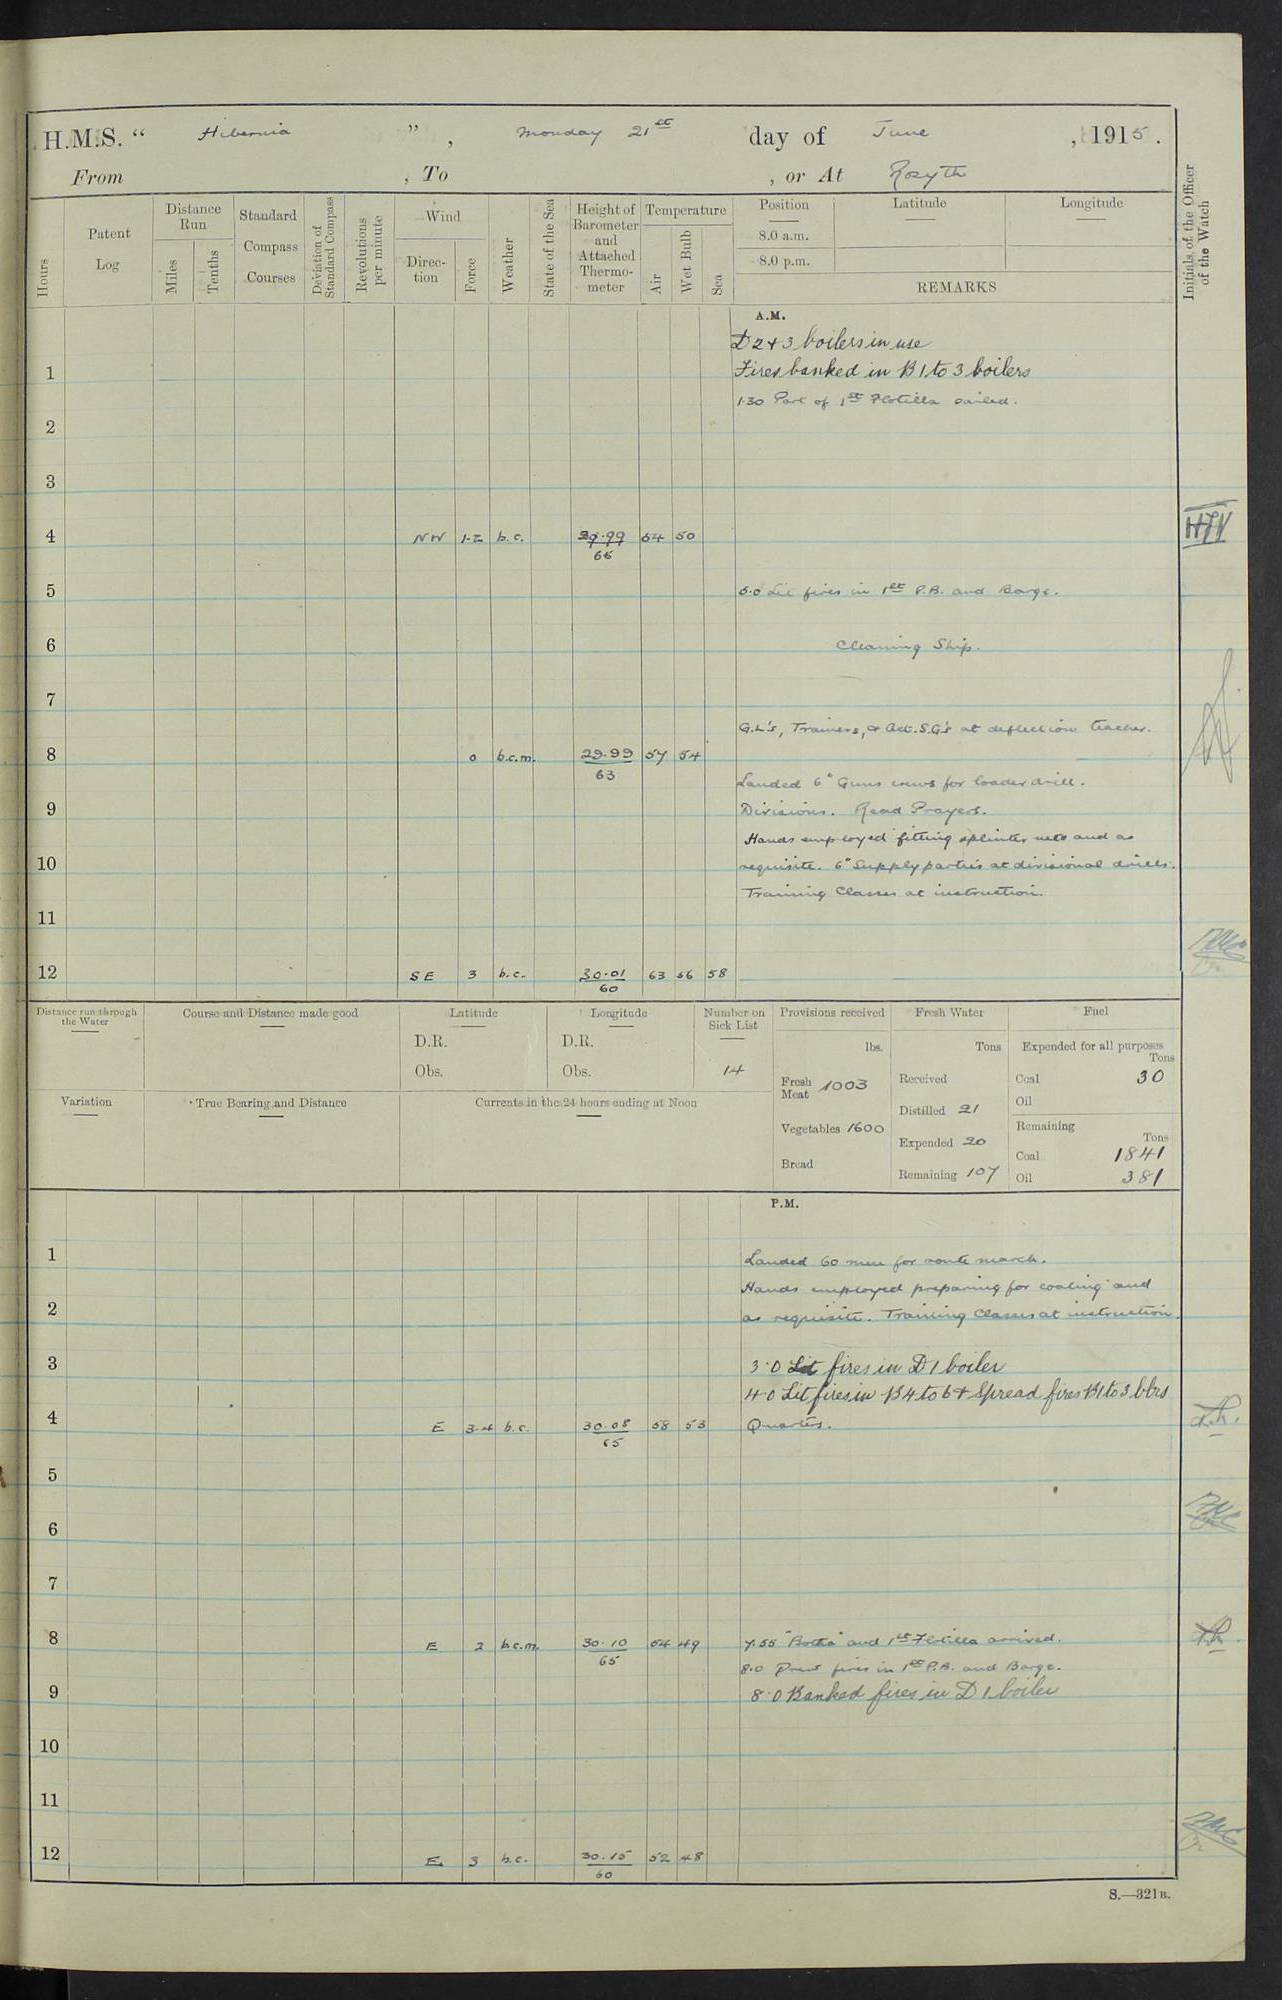 H.M.S. " Hibernia ", Monday 21st day of June, 1915.
From , To , or At Rosyth
Hours
Patent Log
Distance Run
Miles
Tenths
Standard Compass Courses
Deviation of Standard Compass
Revolutions per minute
Wind
Direction
Force
Weather
State of the Sea
Height of Barometer and Attached Thermometer
Temperature
Air
Wet Bulb
Sea
Position
8.0 a.m.
8.0 p.m.
Latitude
Longitude
REMARKS
Initials of the Officer of the Watch
A.M.
D 2 & 3 boilers in use
1 Fires banked in B 1 to 3 boilers
1.30 Part of 1st Flotilla sailed.
2
3
4 NW 1-2 b.c. 29.99 54 50
65
5 5.0 Lit fires in 1st P.B. and Barge.
6 Cleaning Ship.
7
G.L's, Trainers, & Act. S.G's at deflection teacher.
8 0 b.c.m. 29.99 57 54
63
Landed 6" Guns crews for loader drill.
9 Divisions. Read Prayers.
Hands employed fitting splinter nets and as
10 requisite. 6" Supply parties at divisional drills.
Training Classes at instruction.
11
12 SE 3 b.c. 30.01 63 56 58
60
Distance run through the Water
Course and Distance made good
Latitude
D.R.
Obs.
Longitude
D.R.
Obs.
Number on Sick List
14
Variation
True Bearing and Distance
Currents in the 24 hours ending at Noon
Provisions received
lbs.
Fresh Meat 1003
Vegetables 1600
Bread
Fresh Water
Tons
Received
Distilled 21
Expended 20
Remaining 107
Fuel
Expended for all purposes
Tons
Coal 30
Oil
Remaining
Tons
Coal 1841
Oil 381
P.M.
1 Landed 60 men for route march.
Hands employed preparing for coaling and
2 as requisite. Training Classes at instruction.
3 3.0 Lit fires in D 1 boiler
4.0 Lit fires in B 4 to 6 & Spread fires B1 to 3 blrs
4 E 3-4 b.c. 30.08 58 53 Quarters.
65
5
6
7
8 E 2 b.c.m. 30.10 54 49 7.55 "Botha" and 1st Flotilla arrived.
65
8.0 Drew fires in 1st P.B. and Barge.
9 8.0 Banked fires in D 1 boiler
10
11
12 E. 3 b.c. 30.15 52 48
60
S.—321B.